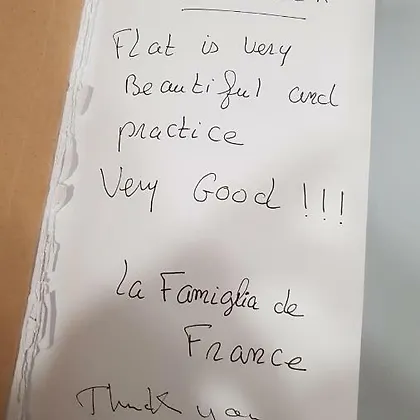 Flat is very
Beautiful and
practice
Very Good !!!
la Famiglia de
France
Thank you